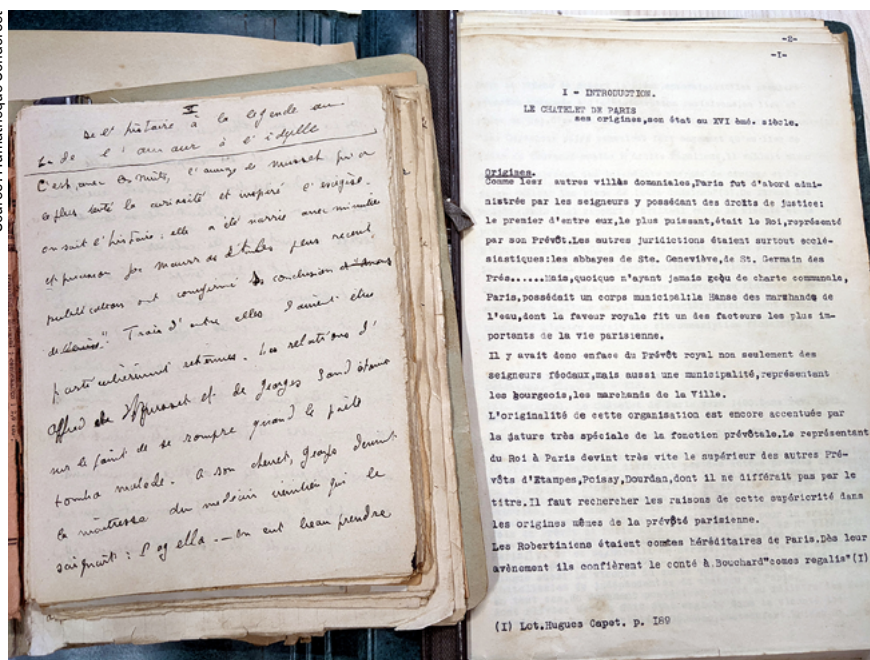 V
De l'histoire à la légende ou
de l'amour à l'idylle
C'est, avec les Nuits, l'amizge de Musset qui a
le plus tenté la curiosité et inspiré l'exégèse.
on sait l'histoire : elle a été narrée avec minutie
et précision par Maurras. d'études plus recent
publications ont confirmé conclusion
Trois d'entre elles doivent être
particulièrement retenues. Les relations d'
Alfred de Musset et de Georges Sand étaient
sur le point de se rompre quand le poète
tomba malade. A son chevet, George devint
la maîtresse du medecin vénitien qui le
soignait : Pagello — on eut beau prendre
-2-
-I-
I - INTRODUCTION.
LE CHATELET DE PARIS
ses origines,son état au XVI ème. siècle.
Origines.
Comme les autres villes domaniales,Paris fut d'abord admi-
nistrée par les seigneurs y possédant des droits de justice:
le premier d'entre eux,le plus puissant,était le Roi,représenté
par son Prévôt.Les autres juridictions étaient surtout ecclé-
siastiques:les abbayes de Ste. Geneviève,de St. Germain des
Prés......Mais,quoique n'ayant jamais reçu de charte communale,
Paris,possédait un corps municipal:la Hanse des marchands de
l'eau,dont la faveur royale fit un des facteurs les plus im-
portants de la vie parisienne.
Il y avait donc enface du Prévôt royal non seulement des
seigneurs féodaux,mais aussi une municipalité,représentant
les bourgeois,les marchands de la Ville.
L'originalité de cette organisation est encore accentuée par
la nature très spéciale de la fonction prévôtale.Le représentant
du Roi à Paris devint très vite le supérieur des autres Pré-
vôts d'Etampes,Poissy,Dourdan,dont il ne différait pas par le
titre.Il faut rechercher les raisons de cette supériorité dans
les origines mêmes de la prévôté parisienne.
Les Robertiniens étaient comtes héréditaires de Paris.Dès leur
avènement ils confièrent le conté à Bouchard"comes regalis"(I)
(I) Lot.Hugues Capet. p. I89